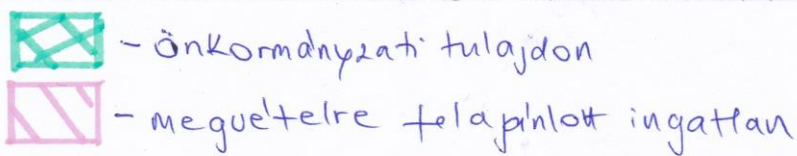 - önkormányzati tulajdon
- megvételre felajánlott ingatlan